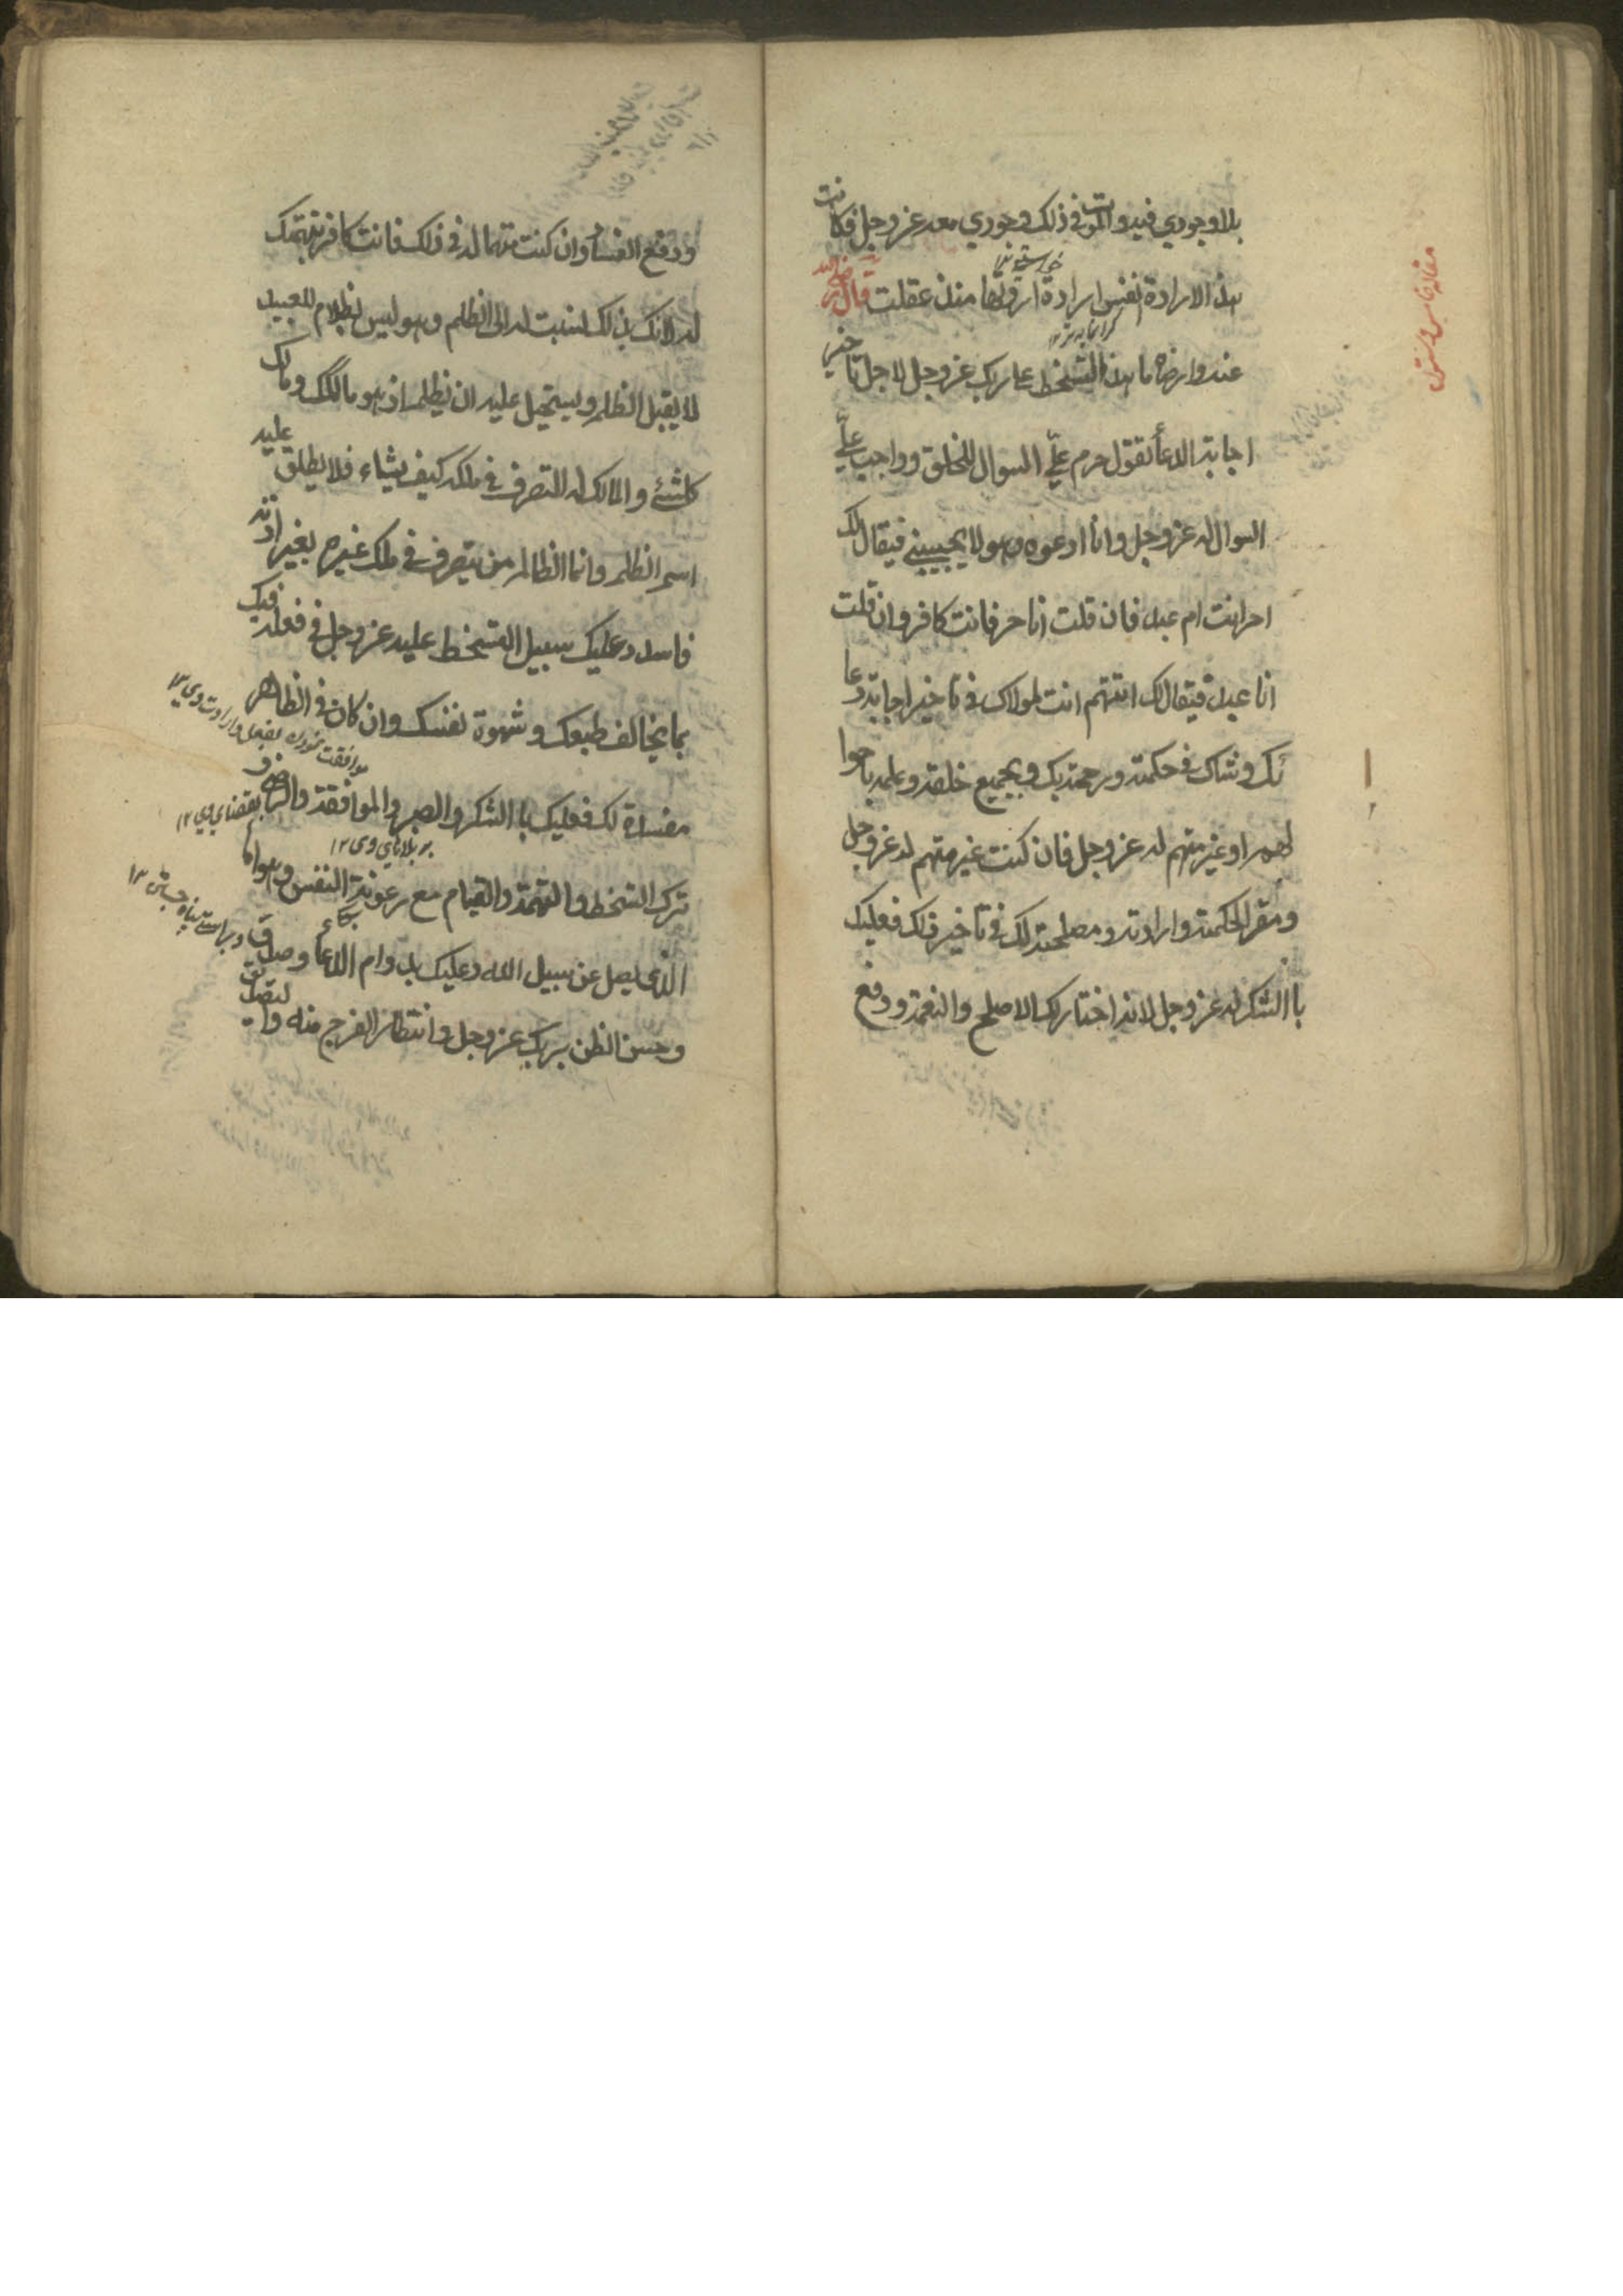 بلا وجودي فيه والموت في ذلك وجودي معه عز وجل فكانت
هذه الارادة انفس ارادة اردتها منذ عقلت قال رضي الله
عنه وارضاه ما هذا التسخط على ربك عز وجل لاجل تاخير
اجابة الدعأ تقول حرم علّي السوال للخلق وواجب علّي
السوال له عز وجل وانا ادعوه وهو لا يجيبني فيقال لك
احرا انت ام عبد فان قلت انا حر فانت كافر وان قلت
انا عبد فيقال لك اتتهم انت لمولاك في تاخير اجابة دعا
ئك وشاك في حكمته ورحمته بك وبجميع خلقه وعلمه باحوا
لهم او غير متهم له عز وجل فان كنت غير متهم له عز وجل
ومقر الحكمته وارادته ومصلحته لك في تاخير ذلك فعليك
باالشكر له عز وجل لانه اختار لك الاصلح والنعمة ودفع
ودفع الفساد وان كنت متهما له في ذلك فانت كافر بتهمتك
له لانك بذلك نسبت له الى الظلم وهو ليس بظلام للعبيد
لا يقبل الظلم ويستحيل عليه ان يظلم اذ هو مالكك ومالك
كلشئ والمالك له التصرف في ملكه كيف يشاء فلا يطلق عليه
اسم الظلم وانما الظالم من يتصرف في ملك غيره بغير اذنه
فاسدد عليك سبيل التسخط عليه عز وجل في فعله فيك
بما يخالف طبعك وشهوة نفسك وان كان في الظاهر
مفسدة لك فعليك باالشكر والصبر والموافقة والرضى و
ترك التسخط والتهمة والقيام مع رعونة النفس وهواها
الذى يضل عن سبيل الله وعليك بدوام الدعأ وصدق
وحسن الظن بربك عز وجل وانتظار الفرج منه